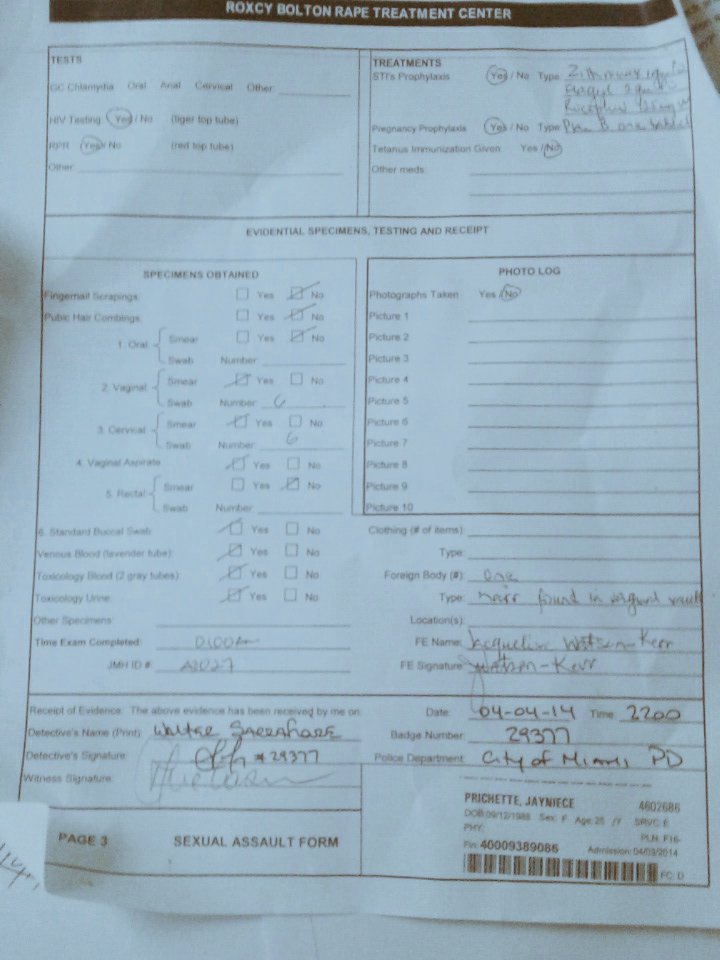 ROXCY BOLTON RAPE TREATMENT CENTER
TESTS
GC Chlamydia Oral Anal Cervical Other:
HIV Testing Yes / No (tiger top tube)
RPR Yes / No (red top tube)
Other:
TREATMENTS
STI's Prophylaxis Yes / No Type:
Pregnancy Prophylaxis Yes / No Type: Plan B one
Tetanus Immunization Given: Yes / No
Other meds:
EVIDENTIAL SPECIMENS, TESTING AND RECEIPT
SPECIMENS OBTAINED
Fingernail Scrapings: Yes No
Pubic Hair Combings: Yes No
1. Oral: Smear Yes No
Swab Number:
2. Vaginal: Smear Yes No
Swab Number: 6
3. Cervical: Smear Yes No
Swab Number: 6
4. Vaginal Aspirate Yes No
5. Rectal: Smear Yes No
Swab Number:
6. Standard Buccal Swab: Yes No
Venous Blood (lavender tube): Yes No
Toxicology Blood (2 gray tubes): Yes No
Toxicology Urine: Yes No
Other Specimens:
Time Exam Completed:
JMH ID #:
PHOTO LOG
Photographs Taken Yes / No
Picture 1
Picture 2
Picture 3
Picture 4
Picture 5
Picture 6
Picture 7
Picture 8
Picture 9
Picture 10
Clothing (# of items):
Type:
Foreign Body (#): one
Type: found in
Location(s):
FE Name: Jacqueline Watson-Kerr
FE Signature: Watson-Kerr
Receipt of Evidence: The above evidence has been received by me on: Date: 04-04-14 Time: 2200
Detective's Name (Print): Badge Number: 29377
Detective's Signature: #29377 Police Department: City of Miami PD
Witness Signature:
PAGE 3 SEXUAL ASSAULT FORM
PRICHETTE, JAYNIECE 4602686
DOB:09/12/1988 Sex: F Age:25 /Y SRVC: E
PHY: PLN: F16-
Fin: 40009389086 Admission: 04/03/2014
FC: D